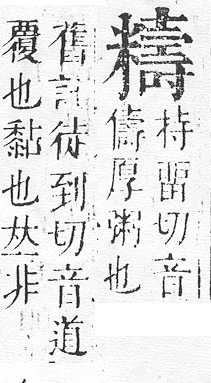 䊭
持畱切音
儔厚粥也
舊註徒到切音道
覆也黏也𠀤非